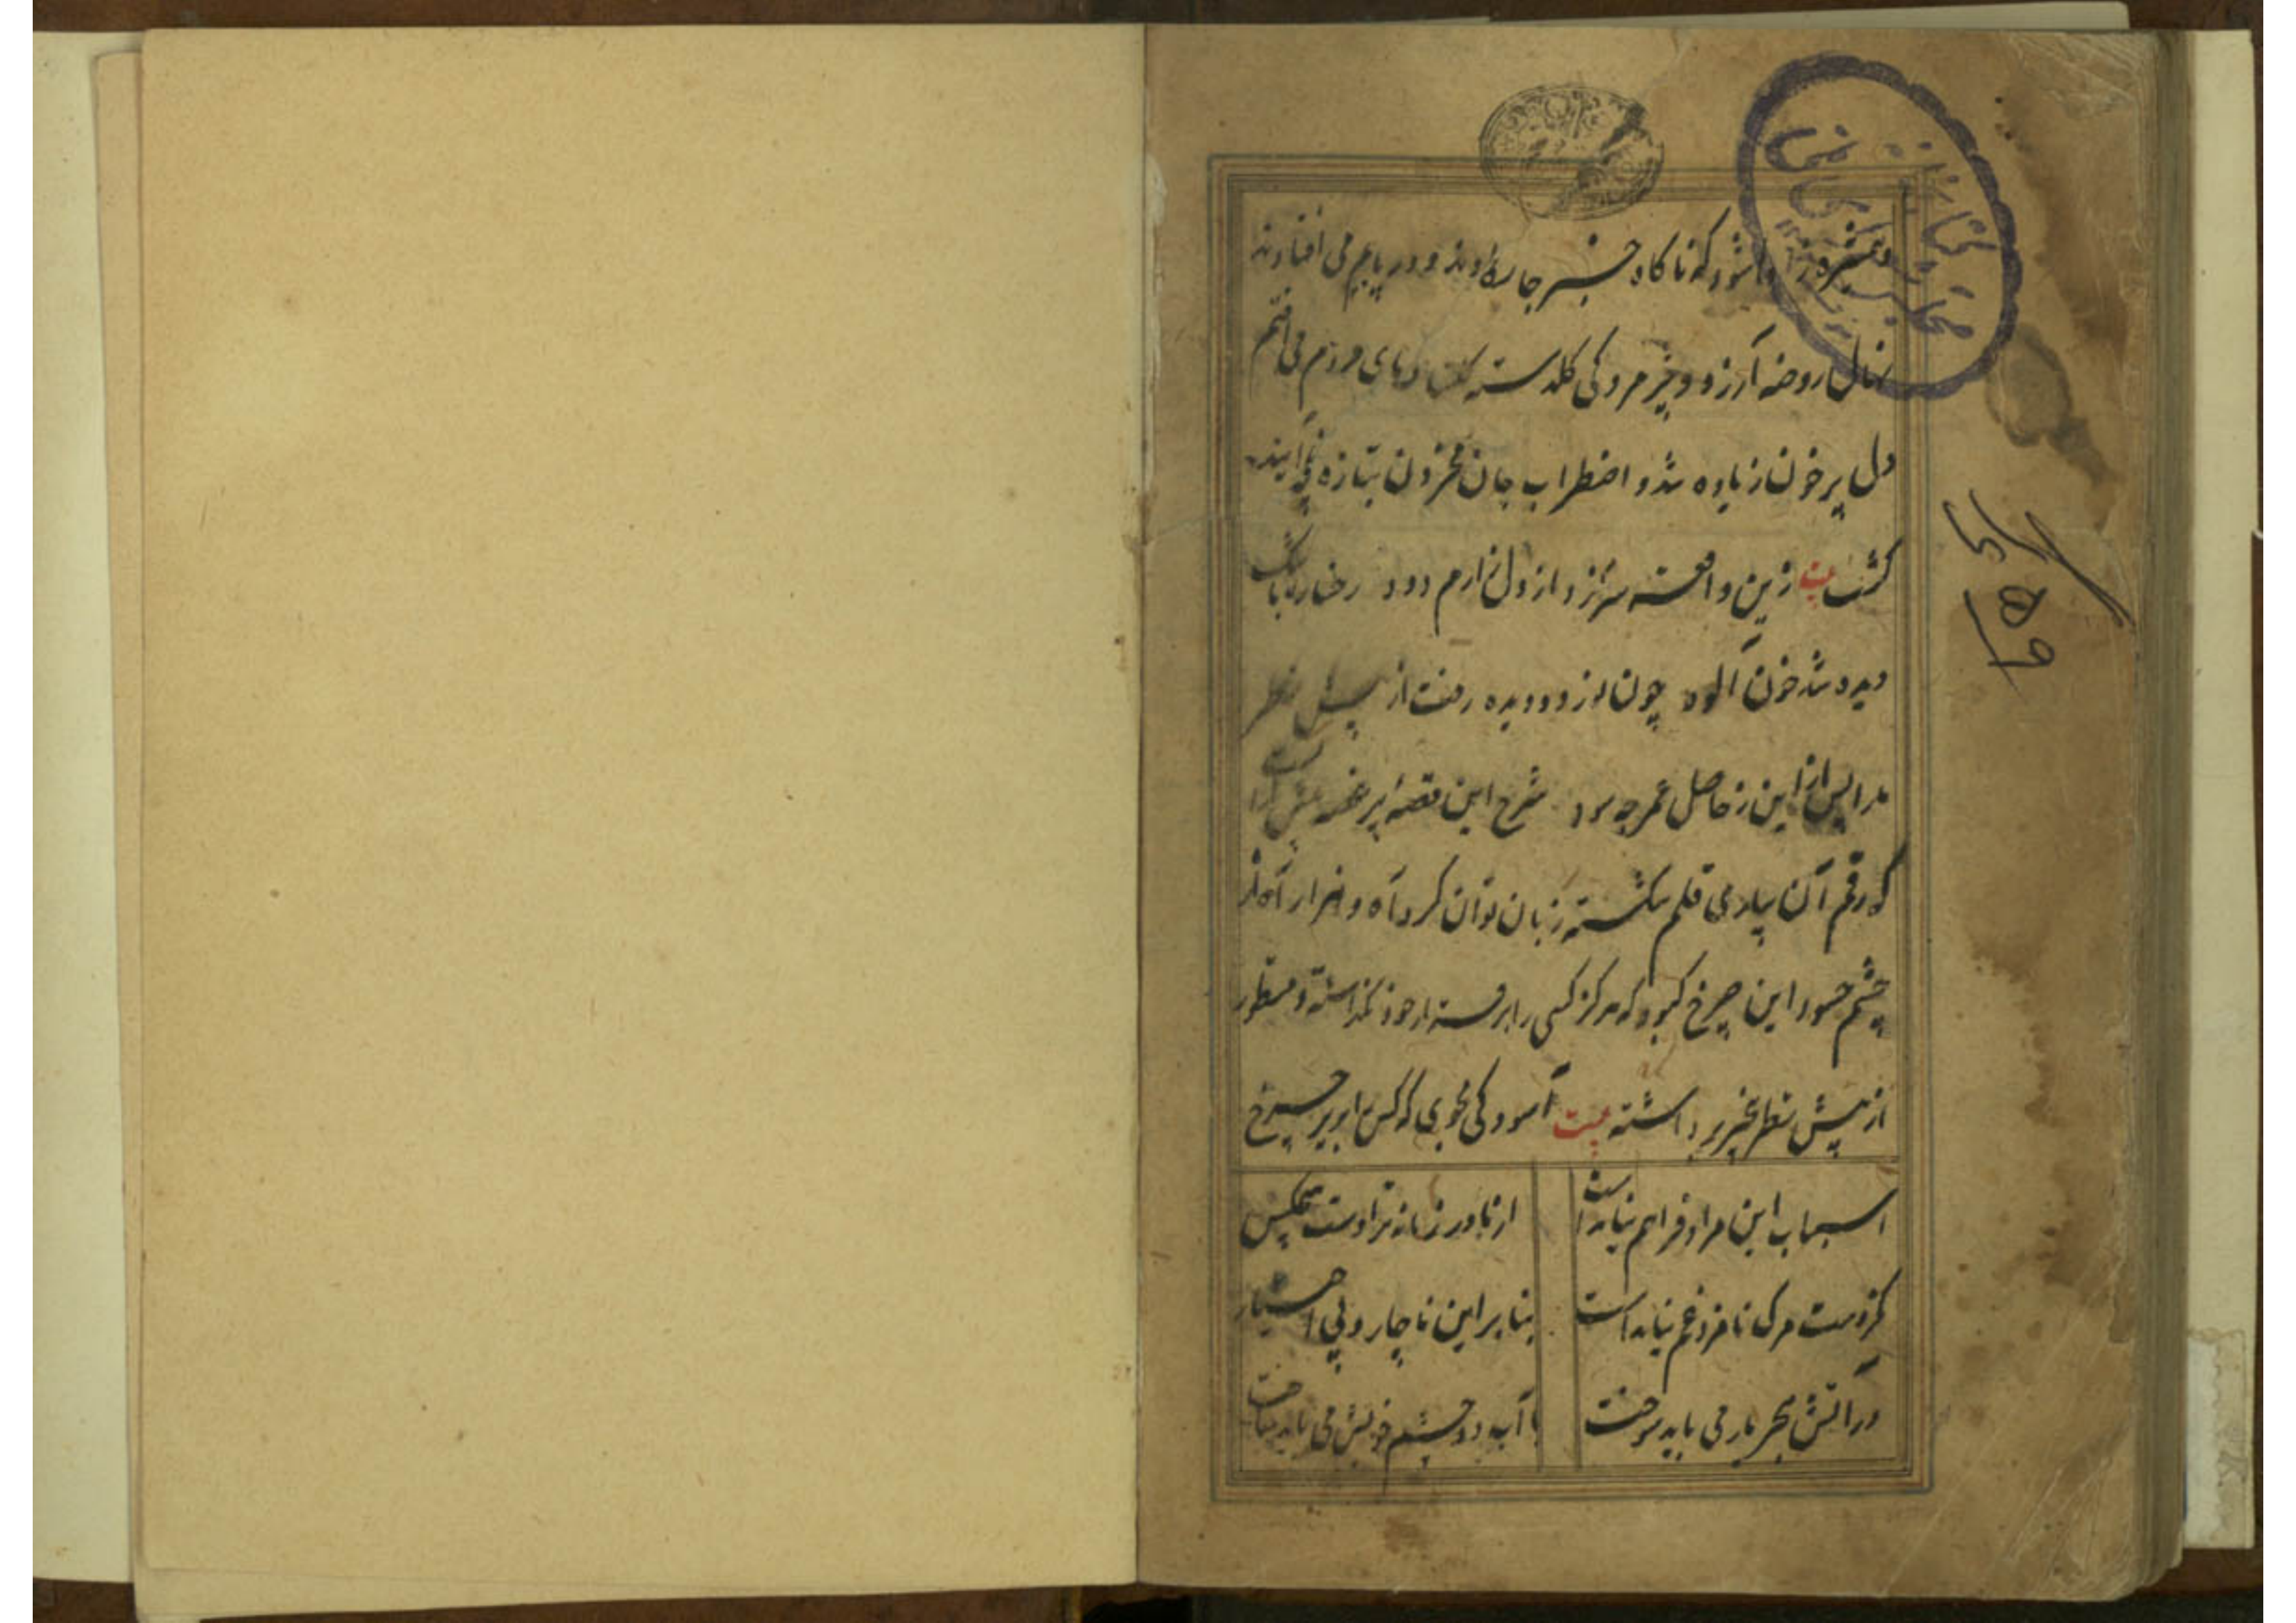 کتابخانه مجلس شورای ملی
که ناگاه خبر جا ودر پایم می افتادند
نهال روضه آرزو و خبر مردکی گلدسته می افتم
دل پر خون زیاده شد و اضطراب جان محزون بتازه
گشت بیت زین واقعه سر زد از دل زارم دود رخساره باشک
دیده شد خون آلود چون نور دو دیده رفت از پیش نظر
ما را پس از این ز حاصل عمر چه سود شرح این قصهٔ پر غصه
که رقم آن بپای قلم شکسته زبان توان کرد آه و هزار آه از
چشم حسود این چرخ کبود که هرگز کسی را خود نگذاشته و منظور
از پیش نظر بر داشته بیت آسودگی مجوی که کس را بزیر چرخ
اسباب این مراد فراهم نیامده است
از مادر زمانه نزادست هیچکس
کز دست مرگ نامزد غم نیامده است
بنا بر این ناچار و بی اختیار
در آتش هجر یار می باید سوخت
با آب دو چشم خویش می باید ساخت